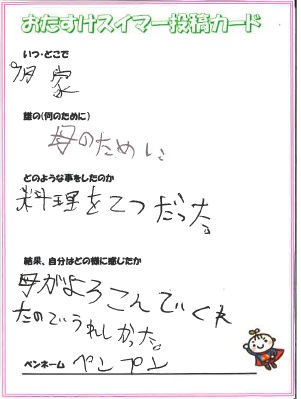 おたすけスイマー投稿カード
いつ・どこで
9月 家
誰の(何のために)
母のために
どのような事をしたのか
料理をてつだった。
結果、自分はどの様に感じたか
母がよろこんでくれ
たのでうれしかった。
ペンネーム ペンプン